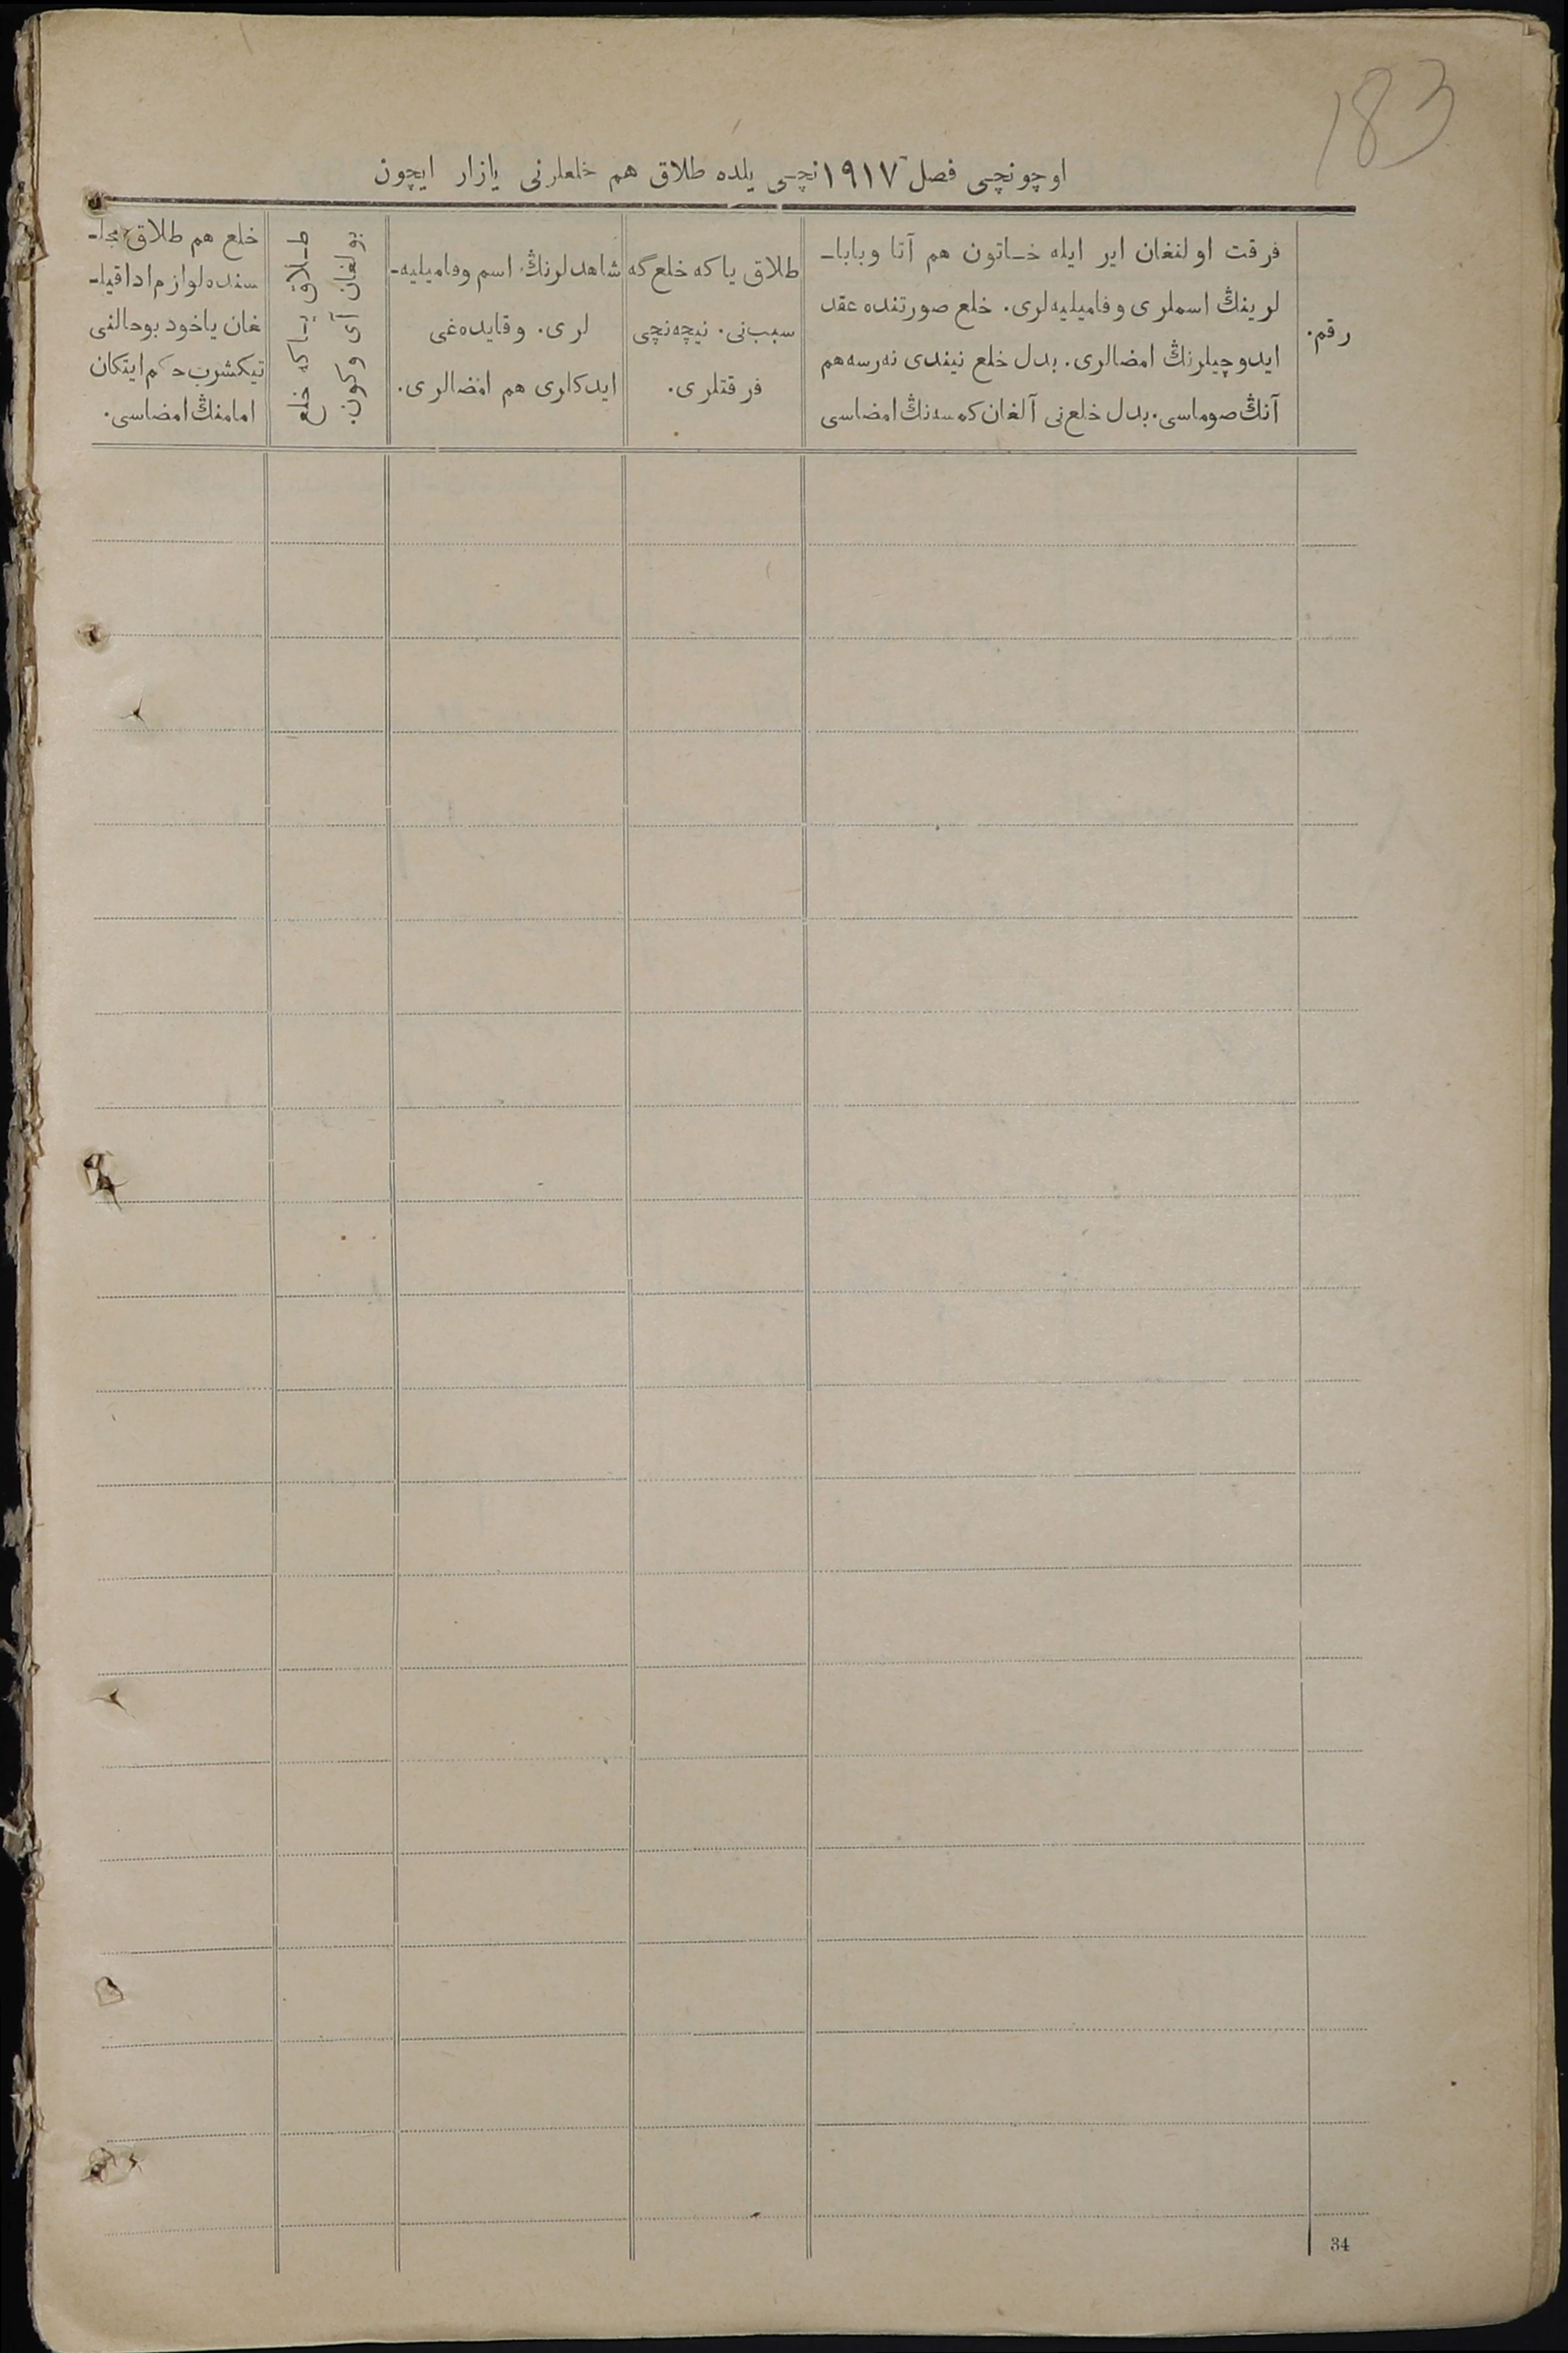 183
اوچونچی فصل ۱۹۱۷ نچی یلده طلاق هم خلعلرنی یازار ایچون
رقم.
فرقت اولنغان ایر ایله خاتون هم آتا وبابا-
لرینڭ اسملری وفامیلیه‌لری. خلع صورتنده عقد
ایدوچیلرنڭ امضالری. بدل خلع نیندی نه‌رسه هم
آنڭ صوماسی. بدل خلع نی آلغان کمسه‌نڭ امضاسی
طلاق یا که خلع گه
سبب نی. نیچه نچی
فرقتلری.
شاهدلرنڭ اسم وفامیلیه-
لری. وقایده‌غی
ایدکلری هم امضالری.
طلاق یا که خلع
بولغان آی وکون.
خلع هم طلاق مجلـ-
سنده لوازم ادا قیلـ-
غان یاخود بوحالنی
تیکشرب حکم ایتکان
امامنڭ امضاسی.
34